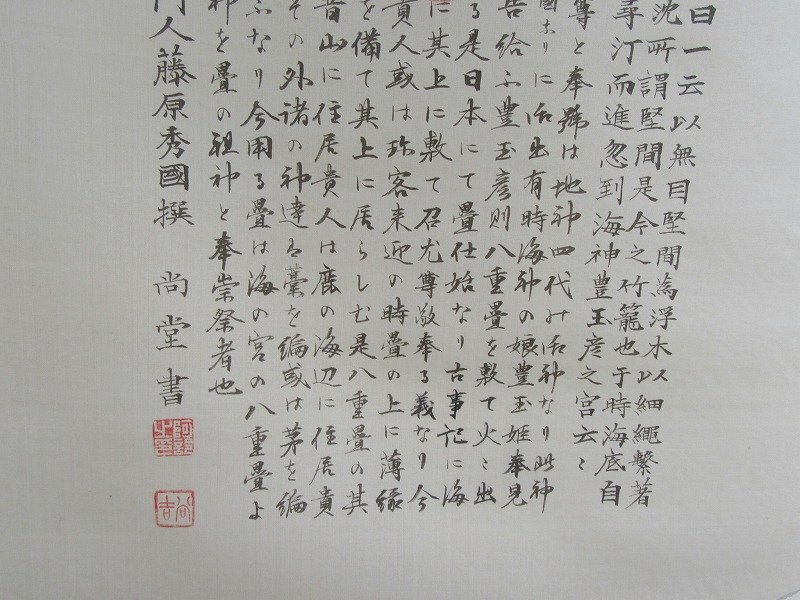 曰一云以無目堅間為浮木以細繩繋著
沈所謂堅間是今之竹籠也于時海底自
尋汀而進忽到海神豊玉彦之宮云〻
尊と奉號は地神四代み御神なり此神
國なりに御出有時海神の娘豊玉姫奉見
告給ふ豊玉彦則八重疊を敷て火〻出
る是日本にて疊仕始なり古事記に海
に其上に敷て召尤尊敬奉る義なり今
貴人或は珎客来迎の時疊の上に薄縁
を備て其上に居らしむ是八重疊の其
昔山に住居貴人は鹿の海辺に住居貴
その外諸の神達は藁を編或は茅を編
ふなり今用る疊は海の宮の八重疊よ
神を疊の祖神と奉崇祭者也
門人藤原秀國撰 尚堂書